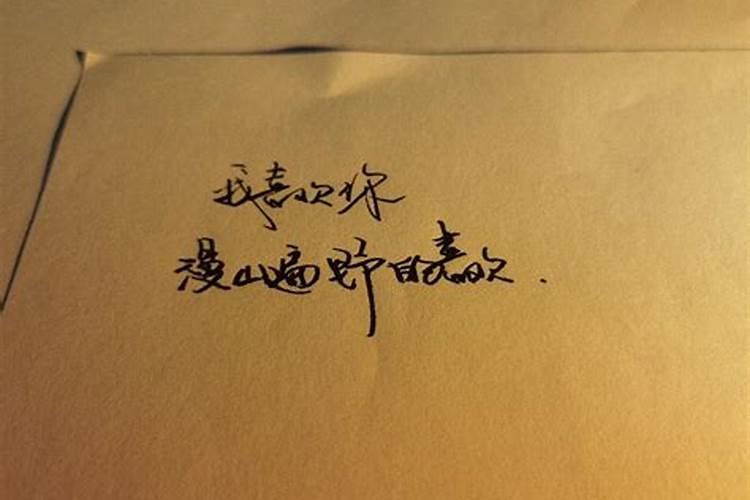 我喜欢你
漫山遍野的喜欢.